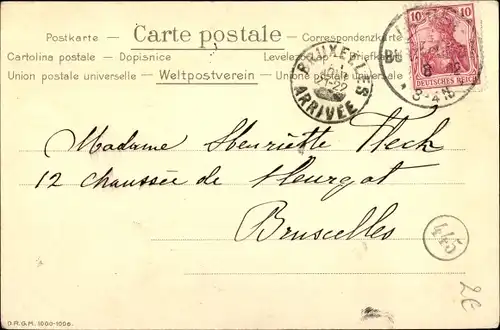 Postkarte — Carte postale — Correspondenzkarte
Cartolina postale — Dopisnice Levelezőlap — Briefkaart
Union postale universelle — Weltpostverein — Unione postale universale
10 10
DEUTSCHES REICH
8-4N
BRUXELLES
21-22
ARRIVÉE
Madame Henriette Fleck
12 chaussée de Fleurgat
Bruxelles
445
2€
D.R.G.M. 1000-1006.